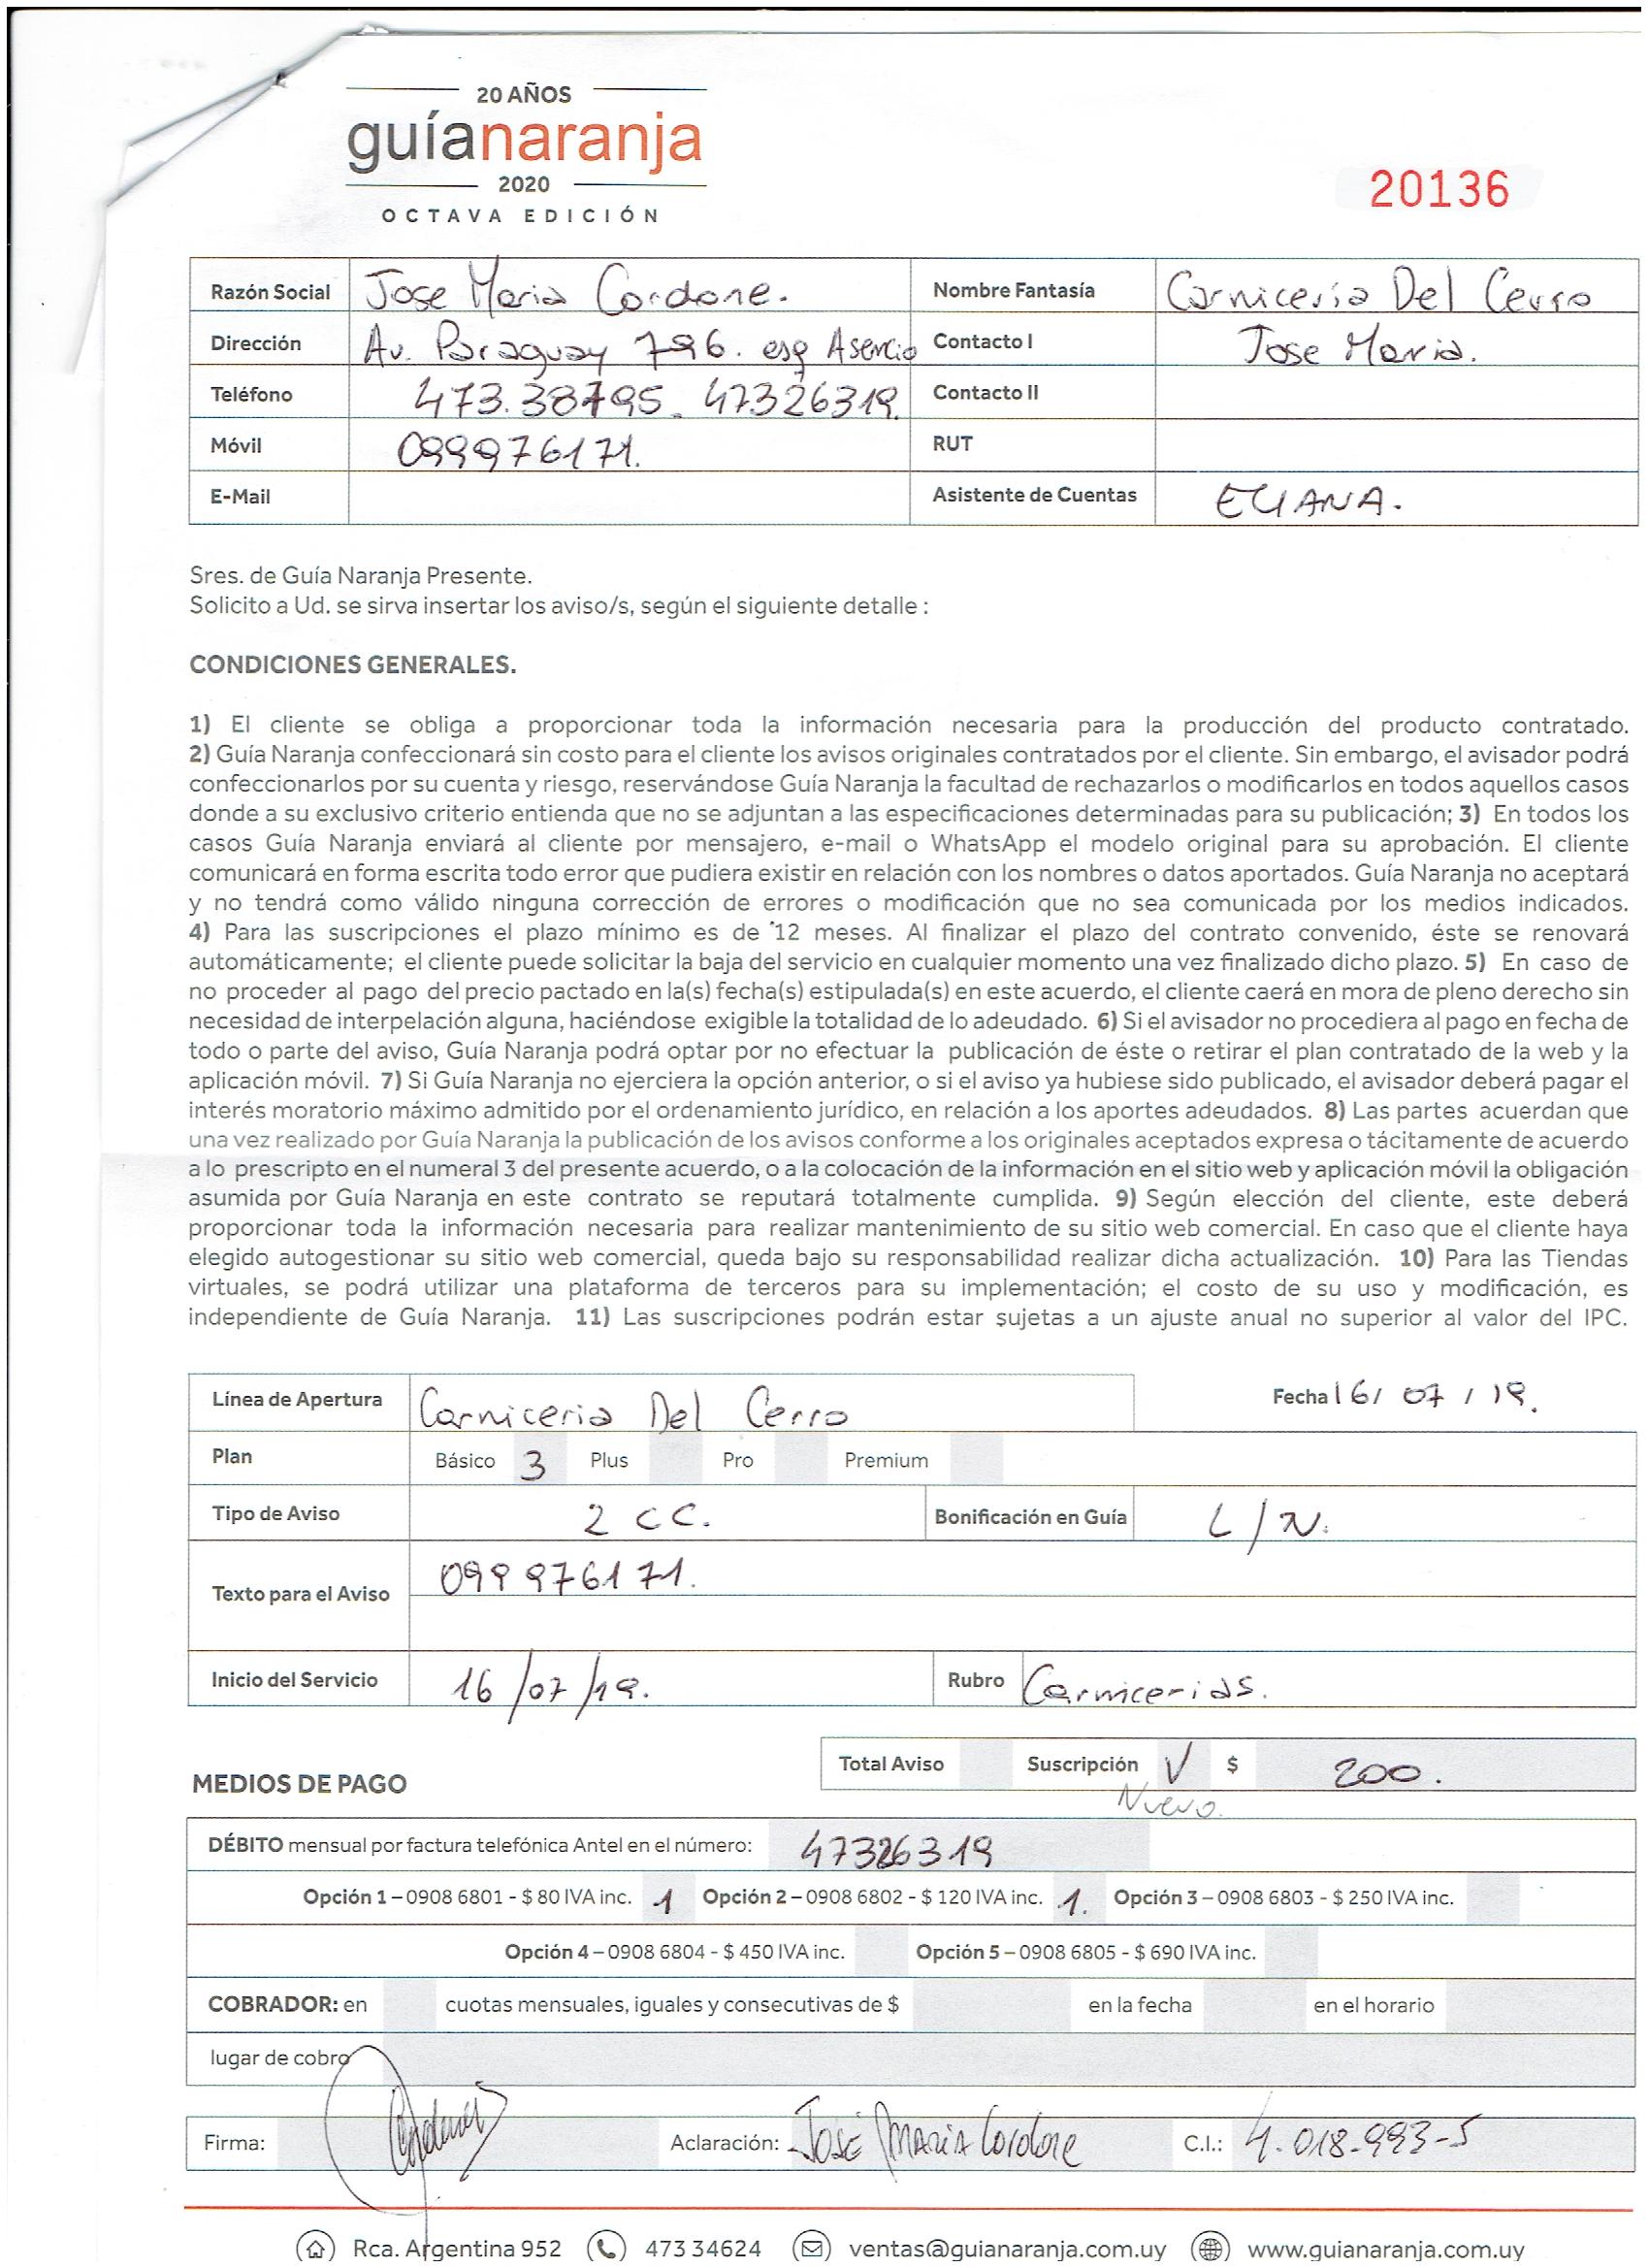 20 AÑOS
guíanaranja
2020
OCTAVA EDICIÓN
20136
Razón Social Jose Maria Cordone. Nombre Fantasía Carnicería Del Cerro
Dirección Av. Paraguay 796. esq Asencio Contacto I Jose Maria.
Teléfono 473.38795. 47326319. Contacto II
Móvil 099976171. RUT
E-Mail Asistente de Cuentas ELIANA.
Sres. de Guía Naranja Presente.
Solicito a Ud. se sirva insertar los aviso/s, según el siguiente detalle :
CONDICIONES GENERALES.
1) El cliente se obliga a proporcionar toda la información necesaria para la producción del producto contratado.
2) Guía Naranja confeccionará sin costo para el cliente los avisos originales contratados por el cliente. Sin embargo, el avisador podrá
confeccionarlos por su cuenta y riesgo, reservándose Guía Naranja la facultad de rechazarlos o modificarlos en todos aquellos casos
donde a su exclusivo criterio entienda que no se adjuntan a las especificaciones determinadas para su publicación; 3) En todos los
casos Guía Naranja enviará al cliente por mensajero, e-mail o WhatsApp el modelo original para su aprobación. El cliente
comunicará en forma escrita todo error que pudiera existir en relación con los nombres o datos aportados. Guía Naranja no aceptará
y no tendrá como válido ninguna corrección de errores o modificación que no sea comunicada por los medios indicados.
4) Para las suscripciones el plazo mínimo es de 12 meses. Al finalizar el plazo del contrato convenido, éste se renovará
automáticamente; el cliente puede solicitar la baja del servicio en cualquier momento una vez finalizado dicho plazo. 5) En caso de
no proceder al pago del precio pactado en la(s) fecha(s) estipulada(s) en este acuerdo, el cliente caerá en mora de pleno derecho sin
necesidad de interpelación alguna, haciéndose exigible la totalidad de lo adeudado. 6) Si el avisador no procediera al pago en fecha de
todo o parte del aviso, Guía Naranja podrá optar por no efectuar la publicación de éste o retirar el plan contratado de la web y la
aplicación móvil. 7) Si Guía Naranja no ejerciera la opción anterior, o si el aviso ya hubiese sido publicado, el avisador deberá pagar el
interés moratorio máximo admitido por el ordenamiento jurídico, en relación a los aportes adeudados. 8) Las partes acuerdan que
una vez realizado por Guía Naranja la publicación de los avisos conforme a los originales aceptados expresa o tácitamente de acuerdo
a lo prescripto en el numeral 3 del presente acuerdo, o a la colocación de la información en el sitio web y aplicación móvil la obligación
asumida por Guía Naranja en este contrato se reputará totalmente cumplida. 9) Según elección del cliente, este deberá
proporcionar toda la información necesaria para realizar mantenimiento de su sitio web comercial. En caso que el cliente haya
elegido autogestionar su sitio web comercial, queda bajo su responsabilidad realizar dicha actualización. 10) Para las Tiendas
virtuales, se podrá utilizar una plataforma de terceros para su implementación; el costo de su uso y modificación, es
independiente de Guía Naranja. 11) Las suscripciones podrán estar sujetas a un ajuste anual no superior al valor del IPC.
Línea de Apertura Carniceria Del Cerro Fecha 16/ 07 / 19.
Plan Básico 3 Plus Pro Premium
Tipo de Aviso 2 CC. Bonificación en Guía L/N.
Texto para el Aviso 099976171.
Inicio del Servicio 16/07/19. Rubro Carnicerias.
Total Aviso Suscripción V $ 200.
Nuevo.
MEDIOS DE PAGO
DÉBITO mensual por factura telefónica Antel en el número: 47326319
Opción 1 – 0908 6801 - $ 80 IVA inc. 1 Opción 2 – 0908 6802 - $ 120 IVA inc. 1. Opción 3 – 0908 6803 - $ 250 IVA inc.
Opción 4 – 0908 6804 - $ 450 IVA inc. Opción 5 – 0908 6805 - $ 690 IVA inc.
COBRADOR: en cuotas mensuales, iguales y consecutivas de $ en la fecha en el horario
lugar de cobro
Firma: Aclaración: JOSÉ MARIA Cordone C.I.: 4.018.993-5
Rca. Argentina 952 473 34624 ventas@guianaranja.com.uy www.guianaranja.com.uy